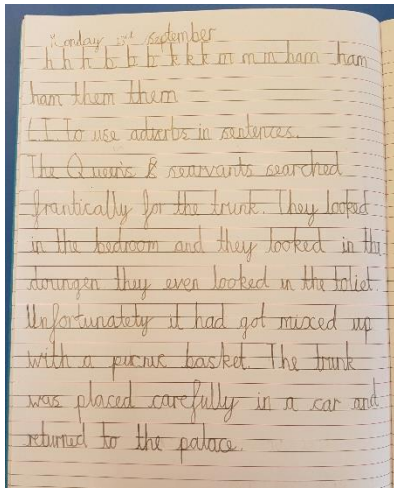 Monday 13th September
h h h b b b k k k m m m ham ham
ham them them
L.I. To use adverbs in sentences.
The Queen's & searvants searched
frantically for the trunk. They looked
in the bedroom and they looked in the
doungen they even looked in the toliet.
Unfortunatety it had got mixed up
with a picnic basket. The trunk
was placed carefully in a car and
returned to the palace.